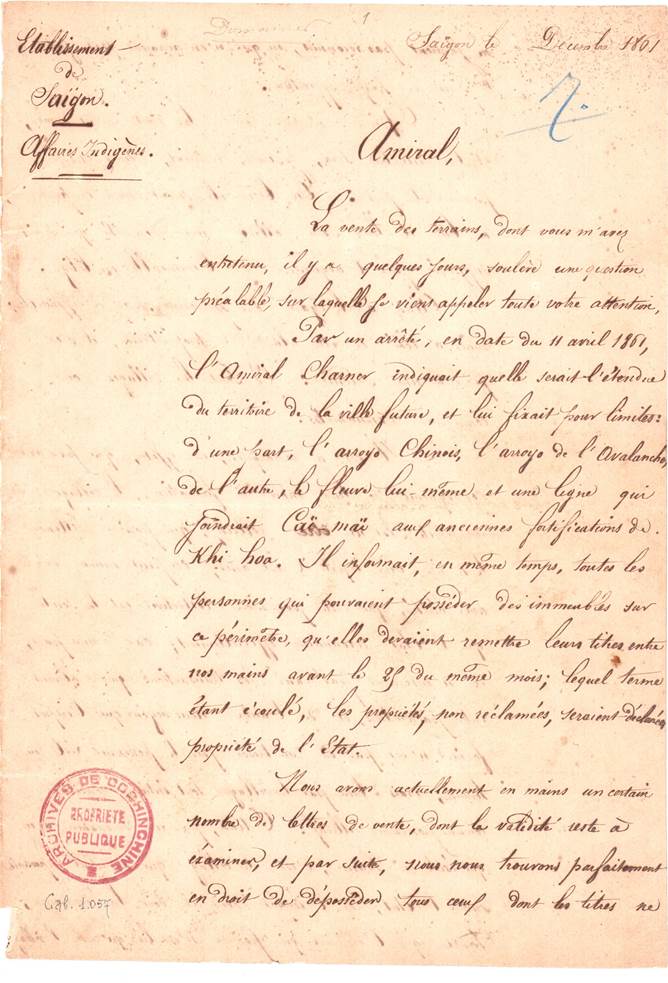 Domaines
1
Etablissement
de
Saïgon.
Affaires Indigènes.
Saïgon le Décembre 1861
7.
Amiral,
La vente des terrains, dont vous m'avez
entretenu, il y a quelques jours, soulève une question
préalable, sur laquelle je viens appeler toute votre attention.
Par un arrêté, en date du 11 avril 1861,
l'Amiral Charner indiquait quelle serait l'étendue
du territoire de la ville future, et lui fixait pour limites:
d'une part, l'arroyo Chinois, l'arroyo de l'Avalanche,
de l'autre, le fleuve lui-même et une ligne qui
joindrait Caï-maï aux anciennes fortifications de
Khi-hoa. Il informait, en même temps, toutes les
personnes qui pouvaient posséder des immeubles sur
ce périmètre, qu'elles devraient remettre leurs titres entre
nos mains avant le 25 du même mois; lequel terme
étant écoulé, les propriétés, non réclamées, seraient déclarées
propriété de l'Etat.
Nous avons actuellement en mains un certain
nombre de lettres de vente, dont la validité reste à
examiner, et par suite, nous nous trouvons parfaitement
en droit de déposséder tous ceux dont les titres ne
ARCHIVES DE COCHINCHINE
PROPRIETE
PUBLIQUE
Cab. 1.057